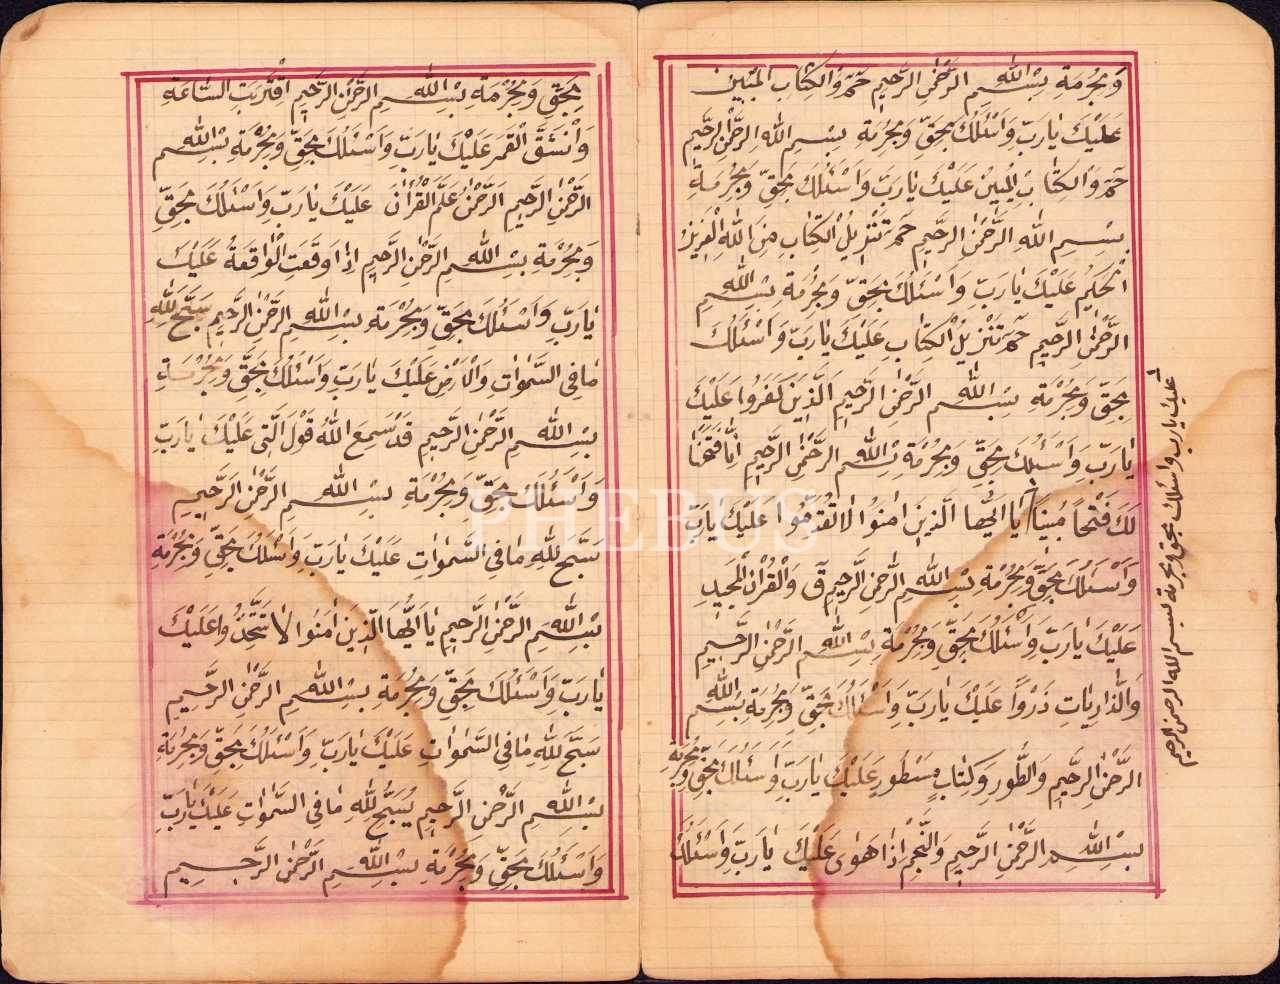 وَبِحُرْمَةِ بِسْمِ اللهِ الرَّحْمٰنِ الرَّحِيمِ حٰمۤ وَالْكِتَابِ الْمُبِينِ
عَلَيْكَ يَارَبِّ وَاَسْئَلُكَ بِحَقِّ وَبِحُرْمَةِ بِسْمِ اللهِ الرَّحْمٰنِ الرَّحِيمِ
حٰمۤ وَالْكِتَابِ الْمُبِينِ عَلَيْكَ يَارَبِّ وَاَسْئَلُكَ بِحَقِّ وَبِحُرْمَةِ
بِسْمِ اللهِ الرَّحْمٰنِ الرَّحِيمِ حٰمۤ تَنْزِيلُ الْكِتَابِ مِنَ اللهِ الْعَزِيزِ
الْحَكِيمِ عَلَيْكَ يَارَبِّ وَاَسْئَلُكَ بِحَقِّ وَبِحُرْمَةِ بِسْمِ اللهِ
الرَّحْمٰنِ الرَّحِيمِ حٰمۤ تَنْزِيلُ الْكِتَابِ عَلَيْكَ يَارَبِّ وَاَسْئَلُكَ
بِحَقِّ وَبِحُرْمَةِ بِسْمِ اللهِ الرَّحْمٰنِ الرَّحِيمِ اَلَّذِينَ كَفَرُوا عَلَيْكَ
يَارَبِّ وَاَسْئَلُكَ بِحَقِّ وَبِحُرْمَةِ بِسْمِ اللهِ الرَّحْمٰنِ الرَّحِيمِ اِنَّا فَتَحْنَا
لَكَ فَتْحًا مُبِينًا يَا اَيُّهَا الَّذِينَ اٰمَنُوا لَا تُقَدِّمُوا عَلَيْكَ يَارَبِّ
وَاَسْئَلُكَ بِحَقِّ وَبِحُرْمَةِ بِسْمِ اللهِ الرَّحْمٰنِ الرَّحِيمِ قۤ وَالْقُرْاٰنِ الْمَجِيدِ
عَلَيْكَ يَارَبِّ وَاَسْئَلُكَ بِحَقِّ وَبِحُرْمَةِ بِسْمِ اللهِ الرَّحْمٰنِ الرَّحِيمِ
وَالذَّارِيَاتِ ذَرْوًا عَلَيْكَ يَارَبِّ وَاَسْئَلُكَ بِحَقِّ وَبِحُرْمَةِ بِسْمِ اللهِ
الرَّحْمٰنِ الرَّحِيمِ وَالطُّورِ وَكِتَابٍ مَسْطُورٍ عَلَيْكَ يَارَبِّ وَاَسْئَلُكَ بِحَقِّ وَبِحُرْمَةِ
بِسْمِ اللهِ الرَّحْمٰنِ الرَّحِيمِ وَالنَّجْمِ اِذَا هَوٰى عَلَيْكَ يَارَبِّ وَاَسْئَلُكَ
عليك يارب واسئلك بحق وبحرمة بسم الله الرحمن الرحيم
بِحَقِّ وَبِحُرْمَةِ بِسْمِ اللهِ الرَّحْمٰنِ الرَّحِيمِ اقْتَرَبَتِ السَّاعَةُ
وَانْشَقَّ الْقَمَرُ عَلَيْكَ يَارَبِّ وَاَسْئَلُكَ بِحَقِّ وَبِحُرْمَةِ بِسْمِ اللهِ
الرَّحْمٰنِ الرَّحِيمِ اَلرَّحْمٰنُ عَلَّمَ الْقُرْاٰنَ عَلَيْكَ يَارَبِّ وَاَسْئَلُكَ بِحَقِّ
وَبِحُرْمَةِ بِسْمِ اللهِ الرَّحْمٰنِ الرَّحِيمِ اِذَا وَقَعَتِ الْوَاقِعَةُ عَلَيْكَ
يَارَبِّ وَاَسْئَلُكَ بِحَقِّ وَبِحُرْمَةِ بِسْمِ اللهِ الرَّحْمٰنِ الرَّحِيمِ سَبَّحَ لِلّٰهِ
مَا فِي السَّمٰوَاتِ وَالْاَرْضِ عَلَيْكَ يَارَبِّ وَاَسْئَلُكَ بِحَقِّ وَبِحُرْمَةِ
بِسْمِ اللهِ الرَّحْمٰنِ الرَّحِيمِ قَدْ سَمِعَ اللهُ قَوْلَ الَّتِي عَلَيْكَ يَارَبِّ
وَاَسْئَلُكَ بِحَقِّ وَبِحُرْمَةِ بِسْمِ اللهِ الرَّحْمٰنِ الرَّحِيمِ
سَبَّحَ لِلّٰهِ مَا فِي السَّمٰوَاتِ عَلَيْكَ يَارَبِّ وَاَسْئَلُكَ بِحَقِّ وَبِحُرْمَةِ
بِسْمِ اللهِ الرَّحْمٰنِ الرَّحِيمِ يَا اَيُّهَا الَّذِينَ اٰمَنُوا لَا تَتَّخِذُوا عَلَيْكَ
يَارَبِّ وَاَسْئَلُكَ بِحَقِّ وَبِحُرْمَةِ بِسْمِ اللهِ الرَّحْمٰنِ الرَّحِيمِ
سَبَّحَ لِلّٰهِ مَا فِي السَّمٰوَاتِ عَلَيْكَ يَارَبِّ وَاَسْئَلُكَ بِحَقِّ وَبِحُرْمَةِ
بِسْمِ اللهِ الرَّحْمٰنِ الرَّحِيمِ يُسَبِّحُ لِلّٰهِ مَا فِي السَّمٰوَاتِ عَلَيْكَ يَارَبِّ
وَاَسْئَلُكَ بِحَقِّ وَبِحُرْمَةِ بِسْمِ اللهِ الرَّحْمٰنِ الرَّحِيمِ
PHEBUS